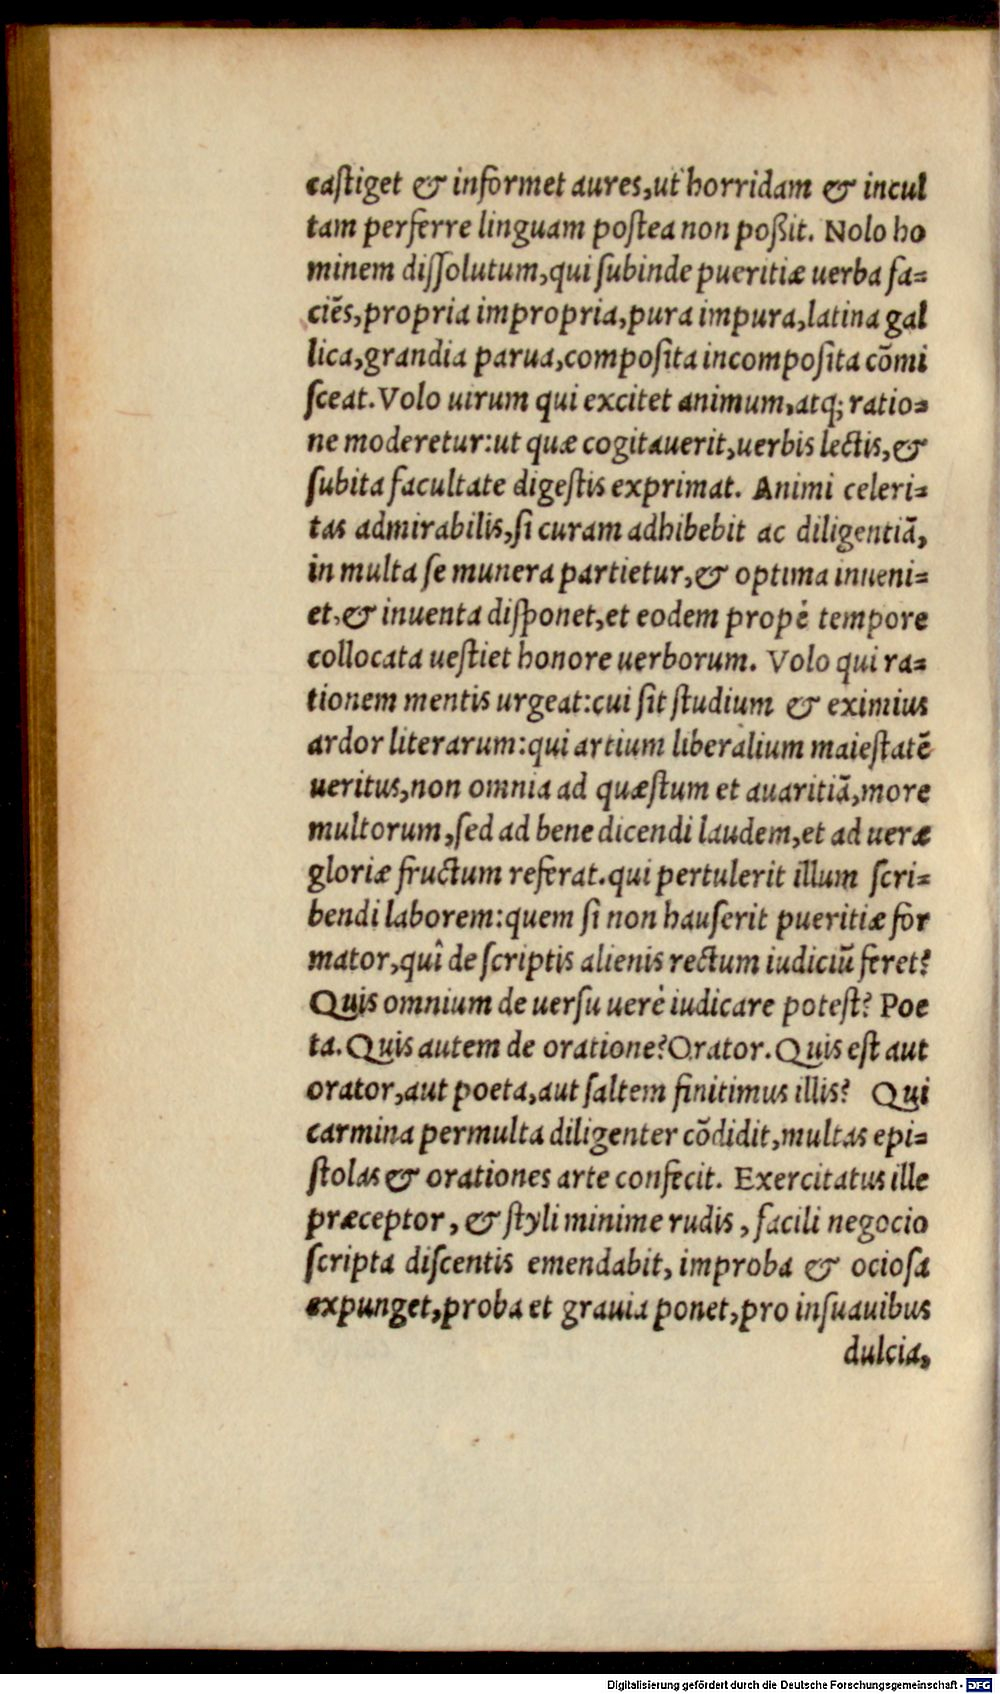 castiget & informet aures,ut horridam & incul
tam perferre linguam postea non poßit. Nolo ho
minem dissolutum,qui subinde pueritiæ uerba fa=
ciẽs,propria impropria,pura impura,latina gal
lica,grandia parua,composita incomposita cõmi
sceat. Volo uirum qui excitet animum,atq; ratio=
ne moderetur:ut quæ cogitauerit,uerbis lectis,&
subita facultate digestis exprimat. Animi celeri=
tas admirabilis,si curam adhibebit ac diligentiã,
in multa se munera partietur,& optima inueni=
et,& inuenta disponet,et eodem propè tempore
collocata uestiet honore uerborum. Volo qui ra=
tionem mentis urgeat:cui sit studium & eximius
ardor literarum:qui artium liberalium maiestatẽ
ueritus,non omnia ad quæstum et auaritiã,more
multorum,sed ad bene dicendi laudem,et ad ueræ
gloriæ fructum referat.qui pertulerit illum scri=
bendi laborem:quem si non hauserit pueritiæ for
mator,quî de scriptis alienis rectum iudiciũ feret?
Quis omnium de uersu uerè iudicare potest? Poe
ta. Quis autem de oratione?Orator. Quis est aut
orator,aut poeta,aut saltem finitimus illis? Qui
carmina permulta diligenter cõdidit,multas epi=
stolas & orationes arte confecit. Exercitatus ille
præceptor, & styli minime rudis, facili negocio
scripta discentis emendabit, improba & ociosa
expunget,proba et grauia ponet,pro insuauibus
dulcia,
Digitalisierung gefördert durch die Deutsche Forschungsgemeinschaft - DFG